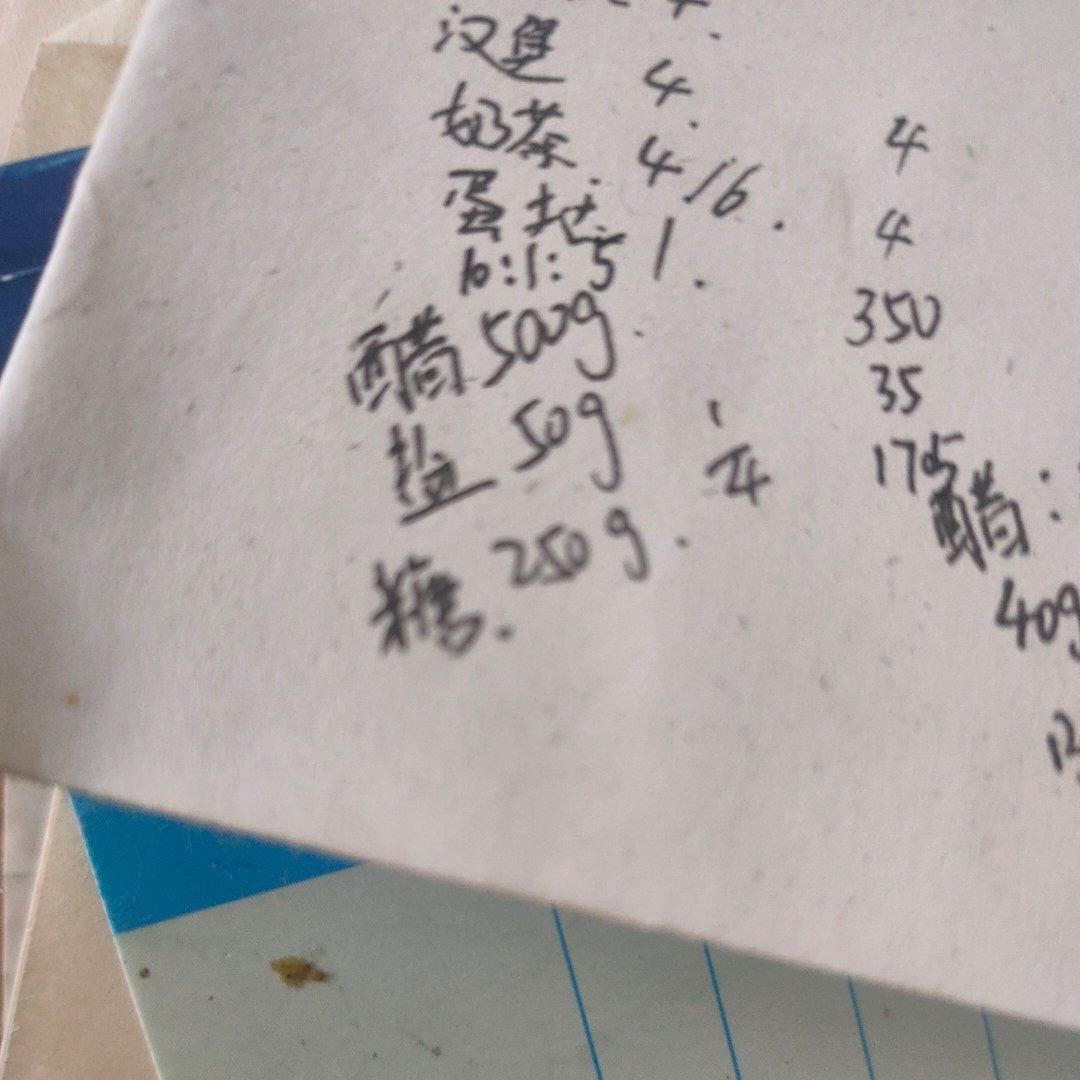 4.
汉堡 4.
奶茶. 4 16.
蛋挞. 1.
10:1:5
醋 500g.
盐 50g
糖. 250g.
4
4
350
35
175
醋:
40g